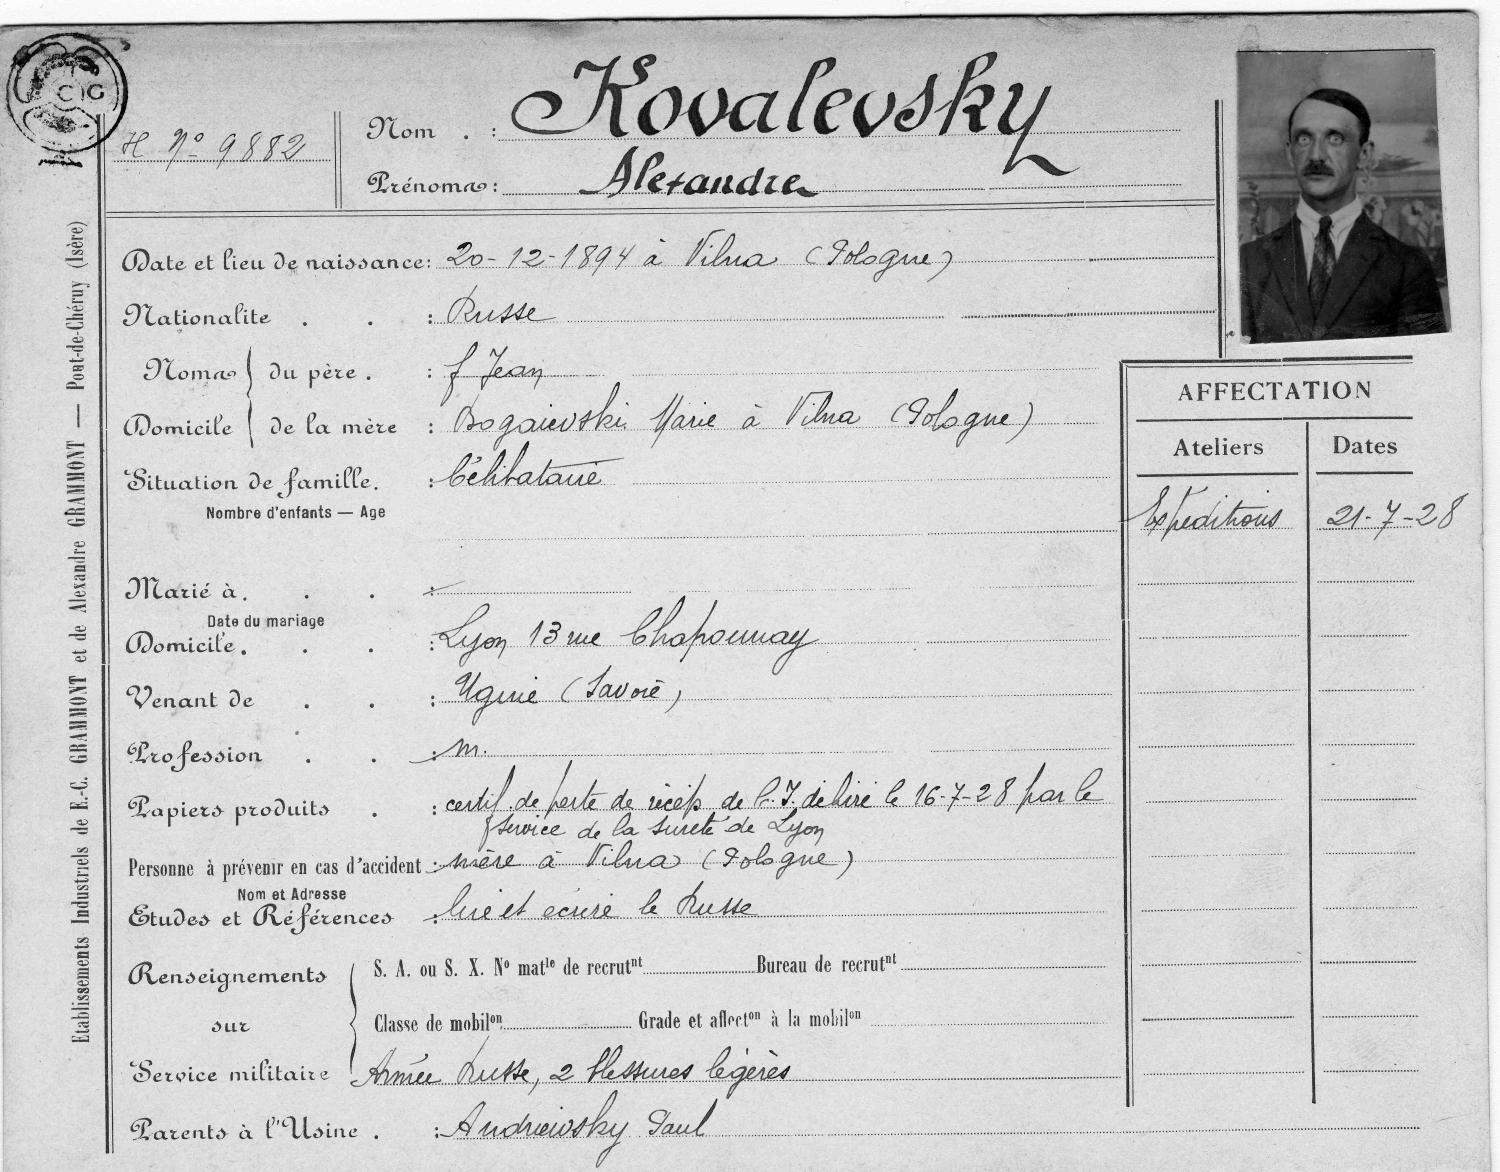 C G
H N° 9882
Nom . : Kovalevsky
Prénoms : Alexandre
Etablissements Industriels de E.-C. GRAMMONT et de Alexandre GRAMMONT — Pont-de-Chéruy (Isère)
Date et lieu de naissance : 20-12-1894 à Vilna (Pologne)
Nationalite . . : Russe
Noms } du père . : f Jean
Domicile } de la mère : Bogaievski Marie à Vilna (Pologne)
Situation de famille. : Célibataire
Nombre d'enfants — Age
Marié à. . . :
Date du mariage
Domicile. . . : Lyon 13 rue Chaponnay
Venant de . . : Ugine (Savoie)
Profession . . : m.
Papiers produits . : certif de perte de récép. de C.I. délivré le 16-7-28 par le
service de la sureté de Lyon
Personne à prévenir en cas d'accident : mère à Vilna (Pologne)
Nom et Adresse
Etudes et Références : lire et écrire le Russe
Renseignements
sur
Service militaire
S. A. ou S. X. N° matle de recrutnt Bureau de recrutnt
Classe de mobilon Grade et affecton à la mobilon
Armée Russe, 2 blessures légères
Parents à l'Usine . : Andrievsky Paul
AFFECTATION
Ateliers Dates
Expéditions 21-7-28